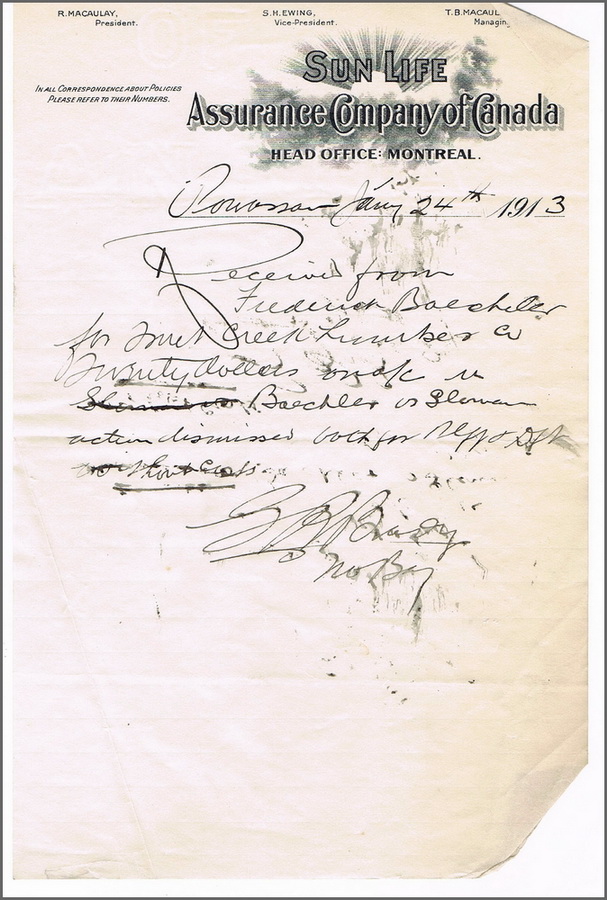 R. MACAULAY, S. H. EWING, T. B. MACAUL
President. Vice-President. Managin
IN ALL CORRESPONDENCE ABOUT POLICIES
PLEASE REFER TO THEIR NUMBERS.
SUN LIFE
Assurance Company of Canada
HEAD OFFICE: MONTREAL.
Powassan Jany 24th 1913
Received from
Frederick Baechler
for Creek Lumber Co
Twenty dollars
Baechler vs Sloman
action dismissed both for
without costs
No Bay